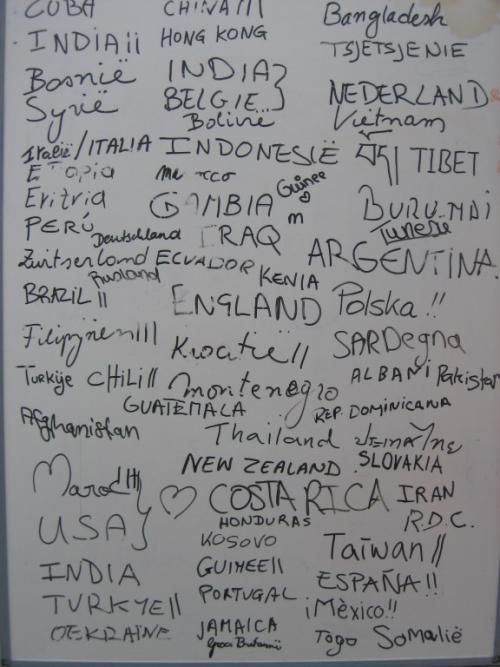 CUBA CHINA!!! Bangladesh
INDIA¡¡ HONG KONG TSJETSJENIE
Bosnië INDIA}
Syrië BELGIE...} NEDERLAND
Bolivië Viëtnam
Italië/ITALIA INDONESIË བོད། TIBET
Guinee
Eritria GAMBIA BURU-MDI
PERÚ Deutschland IRAQ Tunesë
Zwitserland ECUADOR KENIA ARGENTINA.
Rusland
BRAZIL || ENGLAND Polska !!
Filipijnen||| Kroatië|| SARDegna
Turkije CHILi|| montenegro ALBANi Pakistan
GUATEMALA REP. DOMINICANA
Afghanistan Thailand
NEW ZEALAND SLOVAKIA
Maroc ♡ COSTA RICA IRAN
USA} HONDURAS R.D.C.
KOSOVO Taïwan||
INDIA GUINEE|| ESPAÑA!!
TURKYE|| PORTUGAL ¡Mèxico!!
OEKRAÏNE JAMAICA Togo Somalië